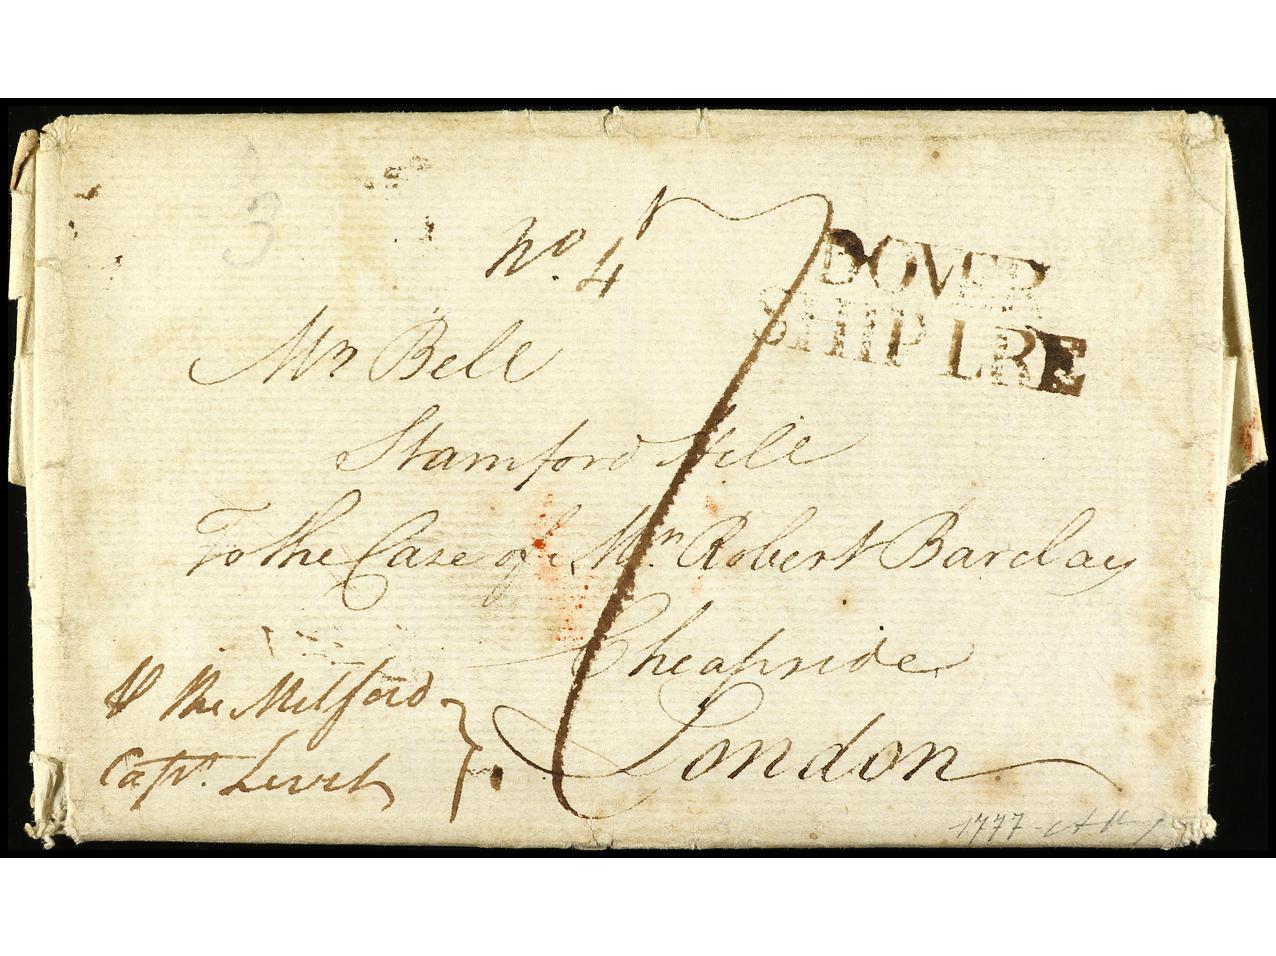 3
No. 4
DOVER
SHIP LRE
Mr Bell
Stamford Hill
To the Care of Mr. Robert Barclay
Cheapside
London
the Milford
Capt.
1777